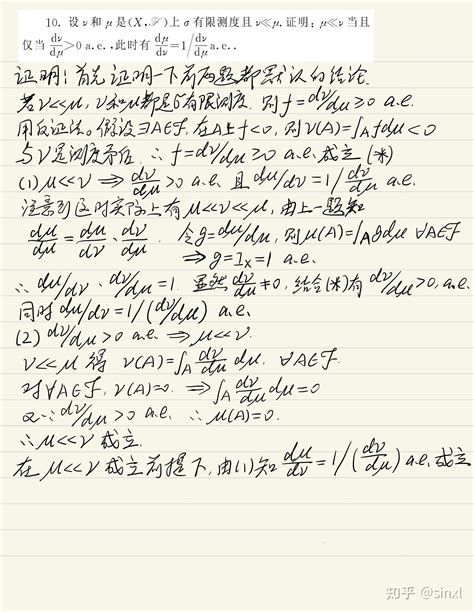 10. 设 ν 和 μ 是(X,ℱ)上 σ 有限测度且 ν≪μ. 证明：μ≪ν 当且
仅当 dν/dμ>0 a.e.,此时有 dμ/dν=1/(dν/dμ) a.e..
证明：首先证明一下前两题都默认的结论.
若ν≪μ, ν和μ都是σ有限测度. 则 f=dν/dμ≥0 a.e.
用反证法。假设∃A∈ℱ, 在A上f<0, 则ν(A)=∫_A fdμ<0
与ν是测度矛盾. ∴ f=dν/dμ≥0 a.e. 成立 (*)
(1) μ≪ν ⇒ dν/dμ>0 a.e. 且 dμ/dν=1/(dν/dμ) a.e.
注意到这时实际上有μ≪ν≪μ, 由上一题知
dμ/dμ=dμ/dν·dν/dμ. 令g=dμ/dμ, 则μ(A)=∫_A gdμ ∀A∈ℱ
⇒ g=I_X=1 a.e.
∴ dμ/dν·dν/dμ=1. 显然dν/dμ≠0, 结合(*)有 dν/dμ>0, a.e.
同时dμ/dν=1/(dν/dμ) a.e.
(2) dν/dμ>0 a.e. ⇒ μ≪ν.
ν≪μ 得 ν(A)=∫_A dν/dμ dμ, ∀A∈ℱ.
对∀A∈ℱ, ν(A)=0. ⇒ ∫_A dν/dμ dμ=0
又∵ dν/dμ>0 a.e. ∴ μ(A)=0.
∴ μ≪ν 成立.
在 μ≪ν 成立前提下, 由(1)知 dμ/dν=1/(dν/dμ) a.e. 成立
知乎 @sinxl